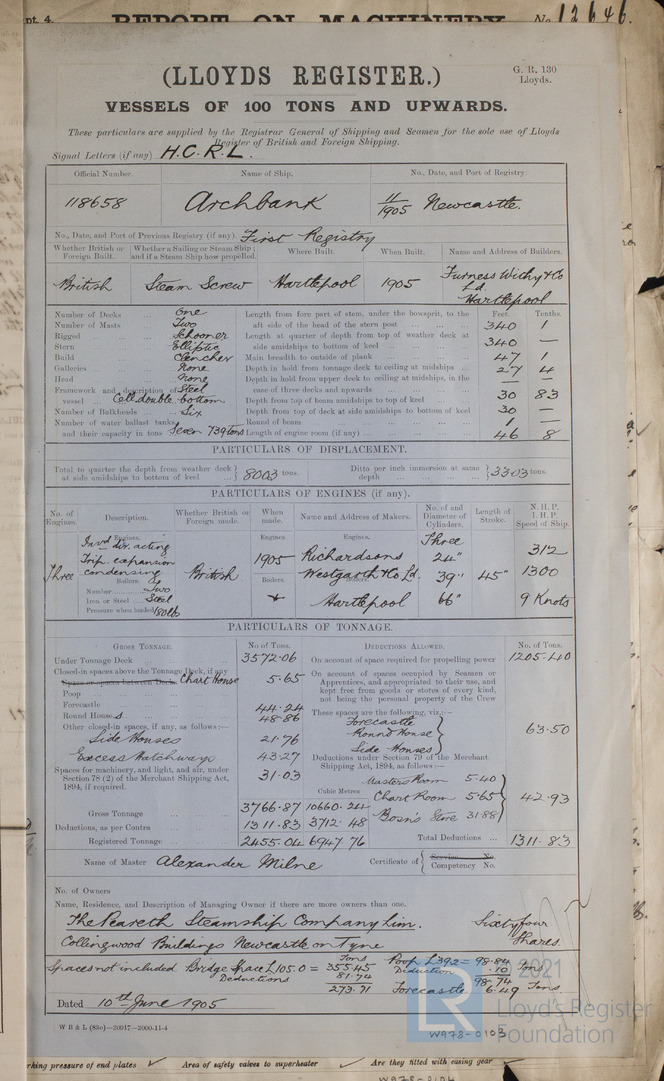 pt. 4. REPORT ON MACHINERY No. 12646.
(LLOYDS REGISTER.)
G. R. 130
Lloyds.
VESSELS OF 100 TONS AND UPWARDS.
These particulars are supplied by the Registrar General of Shipping and Seamen for the sole use of Lloyds
Register of British and Foreign Shipping.
Signal Letters (if any) H.C.R.L.
Official Number. Name of Ship. No., Date, and Port of Registry.
118658 Archbank 11/1905 Newcastle.
No., Date, and Port of Previous Registry (if any). First Registry
Whether British or Foreign Built. Whether a Sailing or Steam Ship; and if a Steam Ship how propelled. Where Built. When Built. Name and Address of Builders.
British Steam Screw Hartlepool 1905 Furness Withy & Co Ld. Hartlepool
Number of Decks ... One Length from fore part of stem, under the bowsprit, to the aft side of the head of the stern post Feet. Tenths. 340 1
Number of Masts ... Two
Rigged ... Schooner Length at quarter of depth from top of weather deck at side amidships to bottom of keel 340 —
Stern ... Elliptic
Build ... Clencher Main breadth to outside of plank 47 1
Galleries ... None Depth in hold from tonnage deck to ceiling at midships 27 4
Head ... None Depth in hold from upper deck to ceiling at midships, in the case of three decks and upwards — —
Framework and description of vessel ... Steel Cell double bottom Depth from top of beam amidships to top of keel 30 83
Number of Bulkheads ... Six Depth from top of deck at side amidships to bottom of keel 30 —
Number of water ballast tanks, and their capacity in tons Seven 739 tons Round of beam 1 —
Length of engine room (if any) 46 8
PARTICULARS OF DISPLACEMENT.
Total to quarter the depth from weather deck at side amidships to bottom of keel } 8003 tons. Ditto per inch immersion at same depth } 33.03 tons.
PARTICULARS OF ENGINES (if any).
No. of Engines. Description. Whether British or Foreign made. When made. Name and Address of Makers. No. of and Diameter of Cylinders. Length of Stroke. N. H. P. I. H. P. Speed of Ship.
Engines. Engines Engines. Three
Invd dir. acting
Trip. expansion 1905 Richardsons 24" 312
Three condensing British Westgarth & Co Ld. 39" 45" 1300
Boilers. Boilers. Boilers.
Number Two
Iron or Steel Steel Hartlepool 66" 9 Knots
Pressure when loaded 180 lb
PARTICULARS OF TONNAGE.
GROSS TONNAGE. No. of Tons. DEDUCTIONS ALLOWED. No. of Tons.
Under Tonnage Deck 3572.06 On account of space required for propelling power 1205.40
Closed-in spaces above the Tonnage Deck, if any On account of spaces occupied by Seamen or
Space or spaces between Deck. Chart House 5.65 Apprentices, and appropriated to their use, and
Poop kept free from goods or stores of every kind,
not being the personal property of the Crew
Forecastle 44.24 These spaces are the following, viz.:—
Round Houses 48.86 Forecastle
Other closed-in spaces, if any, as follows:— Round House } 63.50
Side Houses 21.76 Side Houses
Excess Hatchways 43.27 Deductions under Section 79 of the Merchant Shipping Act, 1894, as follows:—
Spaces for machinery, and light, and air, under Section 78 (2) of the Merchant Shipping Act, 1894, if required. 31.03 Masters Room 5.40
Cubic Metres Chart Room 5.65 } 42.93
Gross Tonnage 3766.87 10660.24 Bosn's Store 31.88
Deductions, as per Contra 1311.83 3712.48
Registered Tonnage 2455.04 6947.76 Total Deductions 1311.83
Name of Master Alexander Milne Certificate of { Service No. Competency No.
No. of Owners
Name, Residence, and Description of Managing Owner if there are more owners than one.
The Peareth Steamship Company Lim. Sixty four
Collingwood Buildings Newcastle on Tyne Shares
Spaces not included Bridge Space L 105.0 = 355.45 Tons Poop L 39.2 = 98.84
Deductions 81.74 Deduction .10 Tons
273.71 98.74
Forecastle 6.49 Tons
Dated 10th June 1905
W B & L (83o)—20917—2000-11-4
LR
2021
Lloyd's Register
Foundation
W978-0103
rking pressure of end plates Area of safety valves to superheater Are they fitted with easing gear
W978-0104